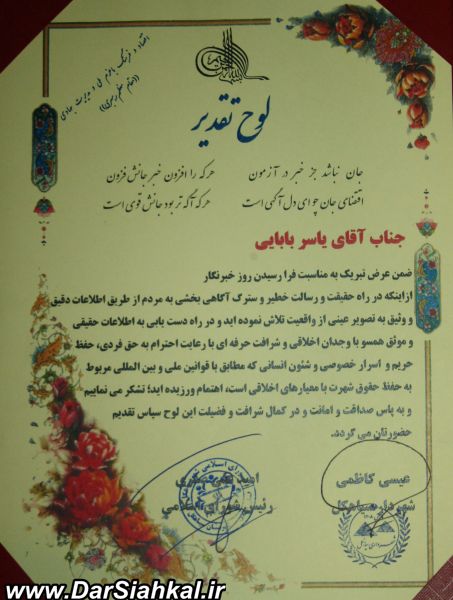 اقتصاد و فرهنگ با عزم ملی و مدیریت جهادی
((مقام معظم رهبری))
لوح تقدیر
جان نباشد جز خبر در آزمون هرکه را افزون خبر جانش فزون
اقتضای جان چو ای دل آگهی است هرکه آگه تر بود جانش قوی است
جناب آقای یاسر بابایی
ضمن عرض تبریک به مناسبت فرا رسیدن روز خبرنگار
ازاینکه در راه حقیقت و رسالت خطیر و سترگ آگاهی بخشی به مردم از طریق اطلاعات دقیق
و وثیق به تصویر عینی از واقعیت تلاش نموده اید و در راه دست یابی به اطلاعات حقیقی
و موثق همسو با وجدان اخلاقی و شرافت حرفه ای با رعایت احترام به حق فردی، حفظ
حریم و اسرار خصوصی و شئون انسانی که مطابق با قوانین ملی و بین المللی مربوط
به حفظ حقوق شهرت با معیارهای اخلاقی است، اهتمام ورزیده اید؛ تشکر می نماییم
و به پاس صداقت و امانت و در کمال شرافت و فضیلت این لوح سپاس تقدیم
حضورتان می گردد.
عیسی کاظمی
شهردار سیاهکل
رئیس شورای اسلامی
www.DarSiahkal.ir